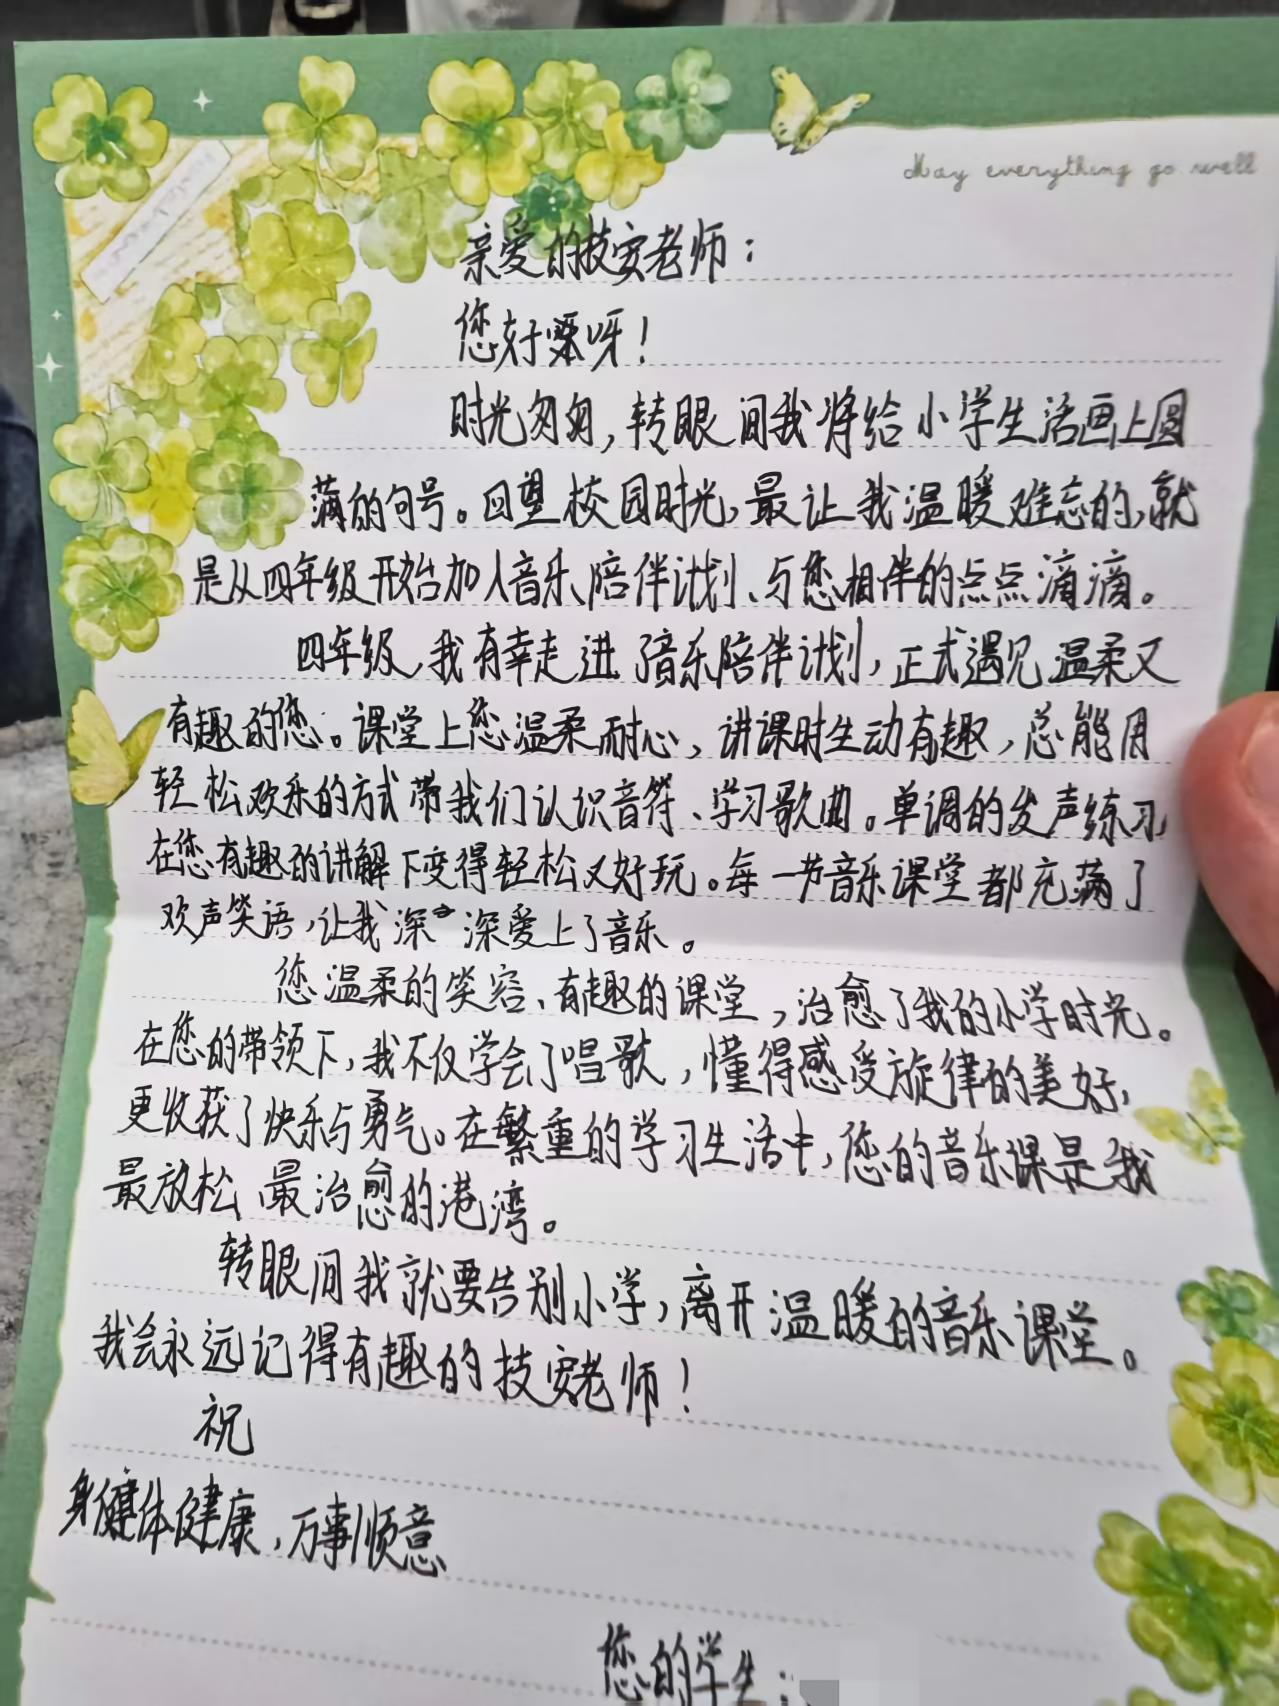 May everything go well
亲爱的技安老师：
您好呀！
时光匆匆，转眼间我将给小学生活画上圆
满的句号。回望校园时光，最让我温暖难忘的，就
是从四年级开始加入音乐陪伴计划、与您相伴的点点滴滴。
四年级，我有幸走进了音乐陪伴计划，正式遇见温柔又
有趣的您。课堂上您温柔耐心，讲课时生动有趣，总能用
轻松欢乐的方式带我们认识音符、学习歌曲。单调的发声练习，
在您有趣的讲解下变得轻松又好玩。每一节音乐课堂都充满了
欢声笑语，让我深深爱上了音乐。
您温柔的笑容、有趣的课堂，治愈了我的小学时光。
在您的带领下，我不仅学会了唱歌，懂得感受旋律的美好，
更收获了快乐与勇气。在繁重的学习生活中，您的音乐课是我
最放松、最治愈的港湾。
转眼间我就要告别小学，离开温暖的音乐课堂。
我会永远记得有趣的技安老师！
祝
身体健康，万事顺意
您的学生：